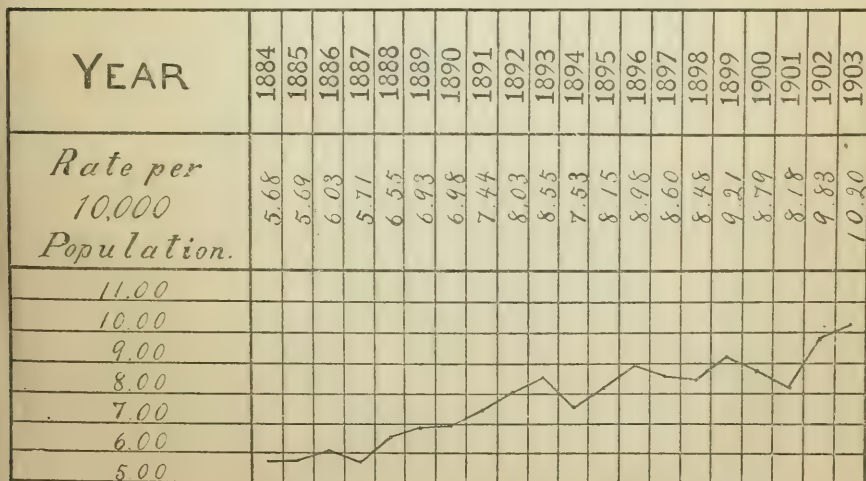 YEAR 1884 1885 1886 1887 1888 1889 1890 1891 1892 1893 1894 1895 1896 1897 1898 1899 1900 1901 1902 1903
Rate per
10,000
Population.
5.68 5.69 6.03 5.71 6.55 6.93 6.98 7.44 8.03 8.55 7.53 8.15 8.98 8.60 8.48 9.21 8.79 8.18 9.83 10.20
11.00
10.00
9.00
8.00
7.00
6.00
5.00